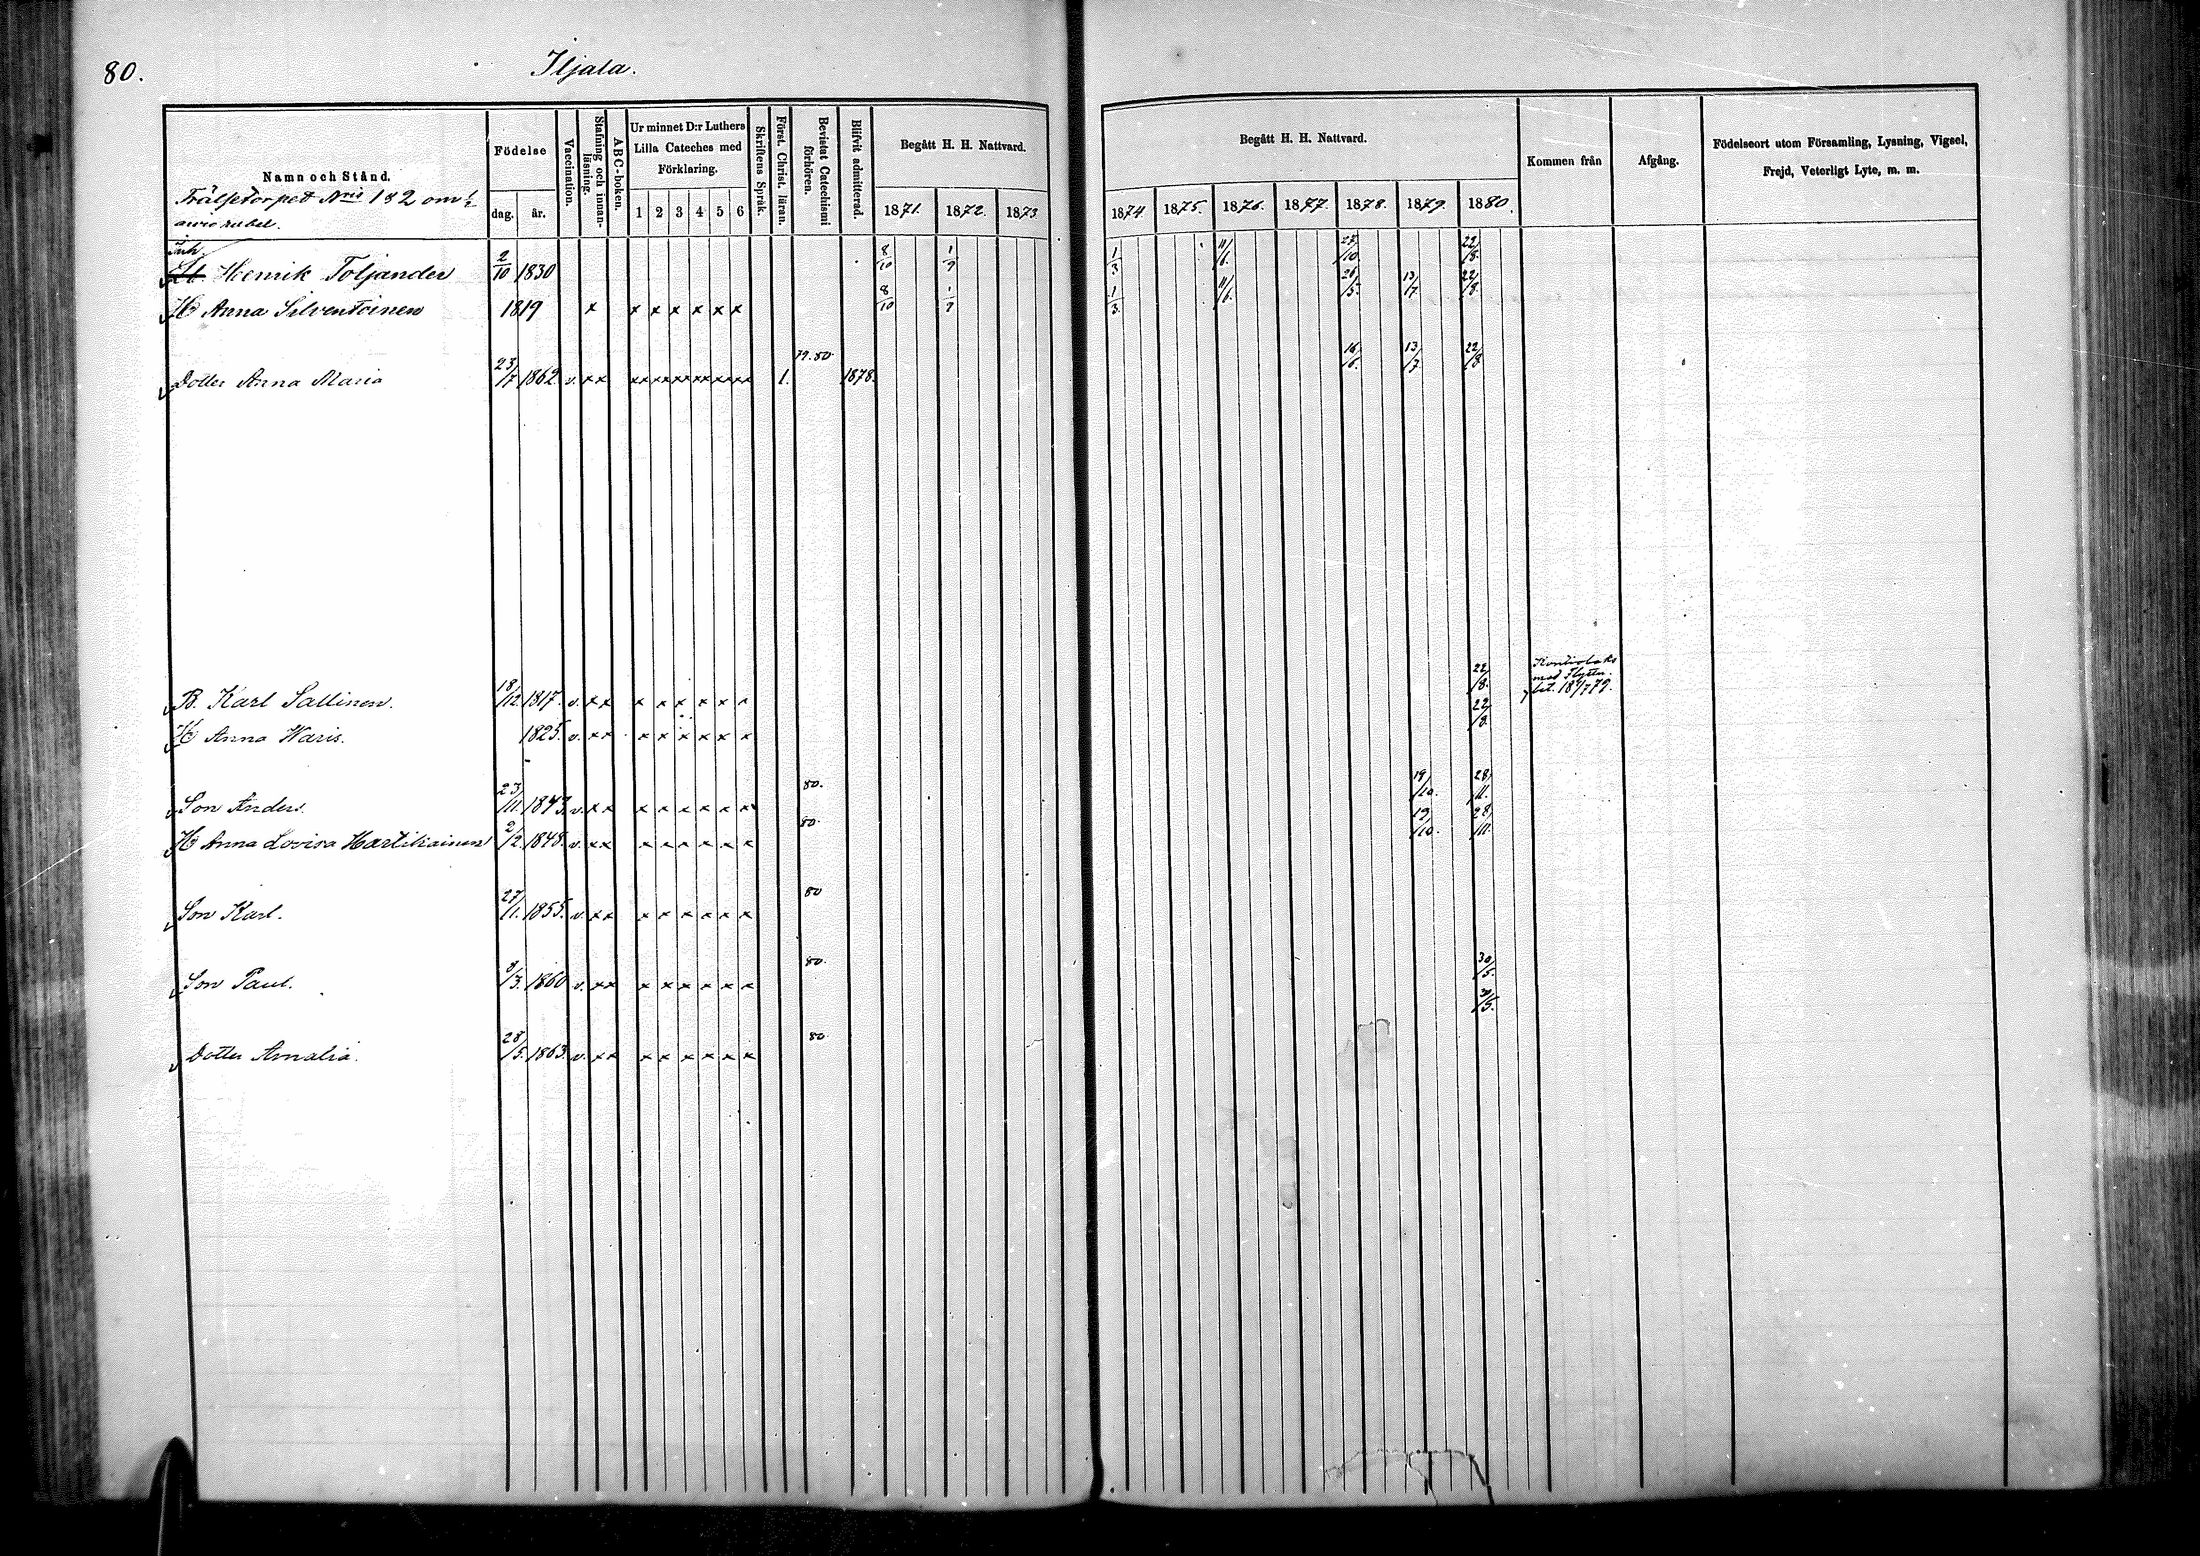 80.
Iljala.
Namn och Stånd.
Frälsetorpet Nris 182 om
Födelse
dag.
år.
Vaccination.
Stafning och innan-läsning.
ABC-boken.
Ur minnet D:r Luthers
Lilla Cateches med
Förklaring.
1 2 3 4 5 6
Skriftens Språk.
Först. Christ. läran.
Bevistat Catechismi förhören.
Blifvit admitterad.
Begått H. H. Nattvard.
1871. 1872. 1873
Begått H. H. Nattvard.
1874. 1875. 1876. 1877. 1878. 1879. 1880.
Kommen från
Afgång.
Födelseort utom Församling, Lysning, Vigsel,
Frejd, Veterligt Lyte, m. m.
Inh.
Henrik Toljander 2/10 1830 8/10 1/9 1/3 11/6. 10. 22/8.
H Anna Silventoinen 1819 x x x x x x x 8/10 1/9 1/3. 11/6. 26/5. 13/7 22/8.
Dotter Anna Maria 23/7 1862 v. xx xx xx xx xx xx xx 1. 79.80. 1878. 16/6. 13/7. 22/8
B. Karl Sallinen. 18/12 1817. v. x x x x x x x x 22/8. Kontiolaks
med Flyttn.
bet. 18/7 79.
H Anna Waris. 1825. v. x x x x x x x x 22/8.
Son Anders. 23/11. 1843. v. x x x x x x x x 80. 19/10. 28/11.
H Anna Lovisa Hartikainen 2/2. 1848. v. x x x x x x x x 80. 19/10. 28/11.
Son Karl. 27/11. 1855. v. x x x x x x x x 80
Son Paul. 9/3. 1860 v. x x x x x x x x 80. 30/5.
30/5.
Dotter Amalia. 28/5. 1863. v. x x x x x x x x 80.